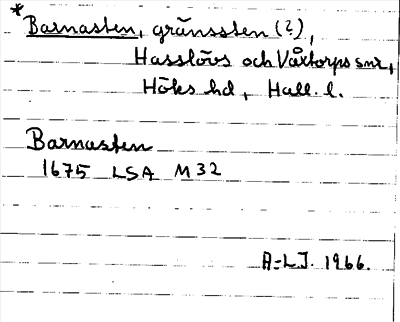 * Barnasten, gränssten (?),
Hasslövs och Våxtorps snr,
Höks hd, Hall. l.
Barnasten
1675 LSA M32
A-LJ. 1966.